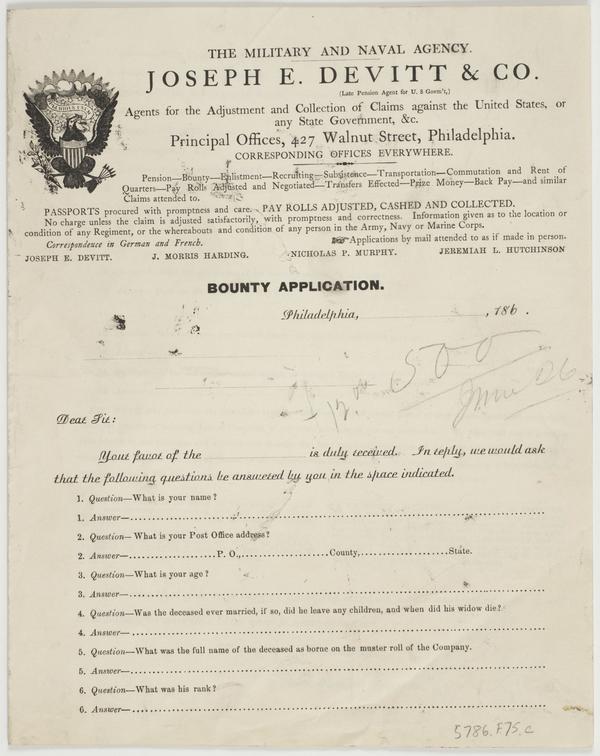 THE MILITARY AND NAVAL AGENCY.
JOSEPH E. DEVITT & CO.
(Late Pension Agent for U. S Goverm't,)
Agents for the Adjustment and Collection of Claims against the United States, or
any State Government, &c.
Principal Offices, 427 Walnut Street, Philadelphia.
CORRESPONDING OFFICES EVERYWHERE.
Pension—Bounty—Enlistment—Recruiting—Subsistence—Transportation—Commutation and Rent of
Quarters—Pay Rolls Adjusted and Negotiated—Transfers Effected—Prize Money—Back Pay—and similar
Claims attended to.
PASSPORTS procured with promptness and care. PAY ROLLS ADJUSTED, CASHED AND COLLECTED.
No charge unless the claim is adjusted satisfactorily, with promptness and correctness. Information given as to the location or
condition of any Regiment, or the whereabouts and condition of any person in the Army, Navy or Marine Corps.
Correspondence in German and French. Applications by mail attended to as if made in person.
JOSEPH E. DEVITT. J. MORRIS HARDING. NICHOLAS P. MURPHY. JEREMIAH L. HUTCHINSON
BOUNTY APPLICATION.
Philadelphia, , 186 .
500
Dear Sir:
Your favor of the is duly received. In reply, we would ask
that the following questions be answered by you in the space indicated.
1. Question—What is your name?
1. Answer—
2. Question—What is your Post Office address?
2. Answer— P. O., County, State.
3. Question—What is your age?
3. Answer—
4. Question—Was the deceased ever married, if so, did he leave any children, and when did his widow die?
4. Answer—
5. Question—What was the full name of the deceased as borne on the muster roll of the Company.
5. Answer—
6. Question—What was his rank?
6. Answer—
5786.F.75.c